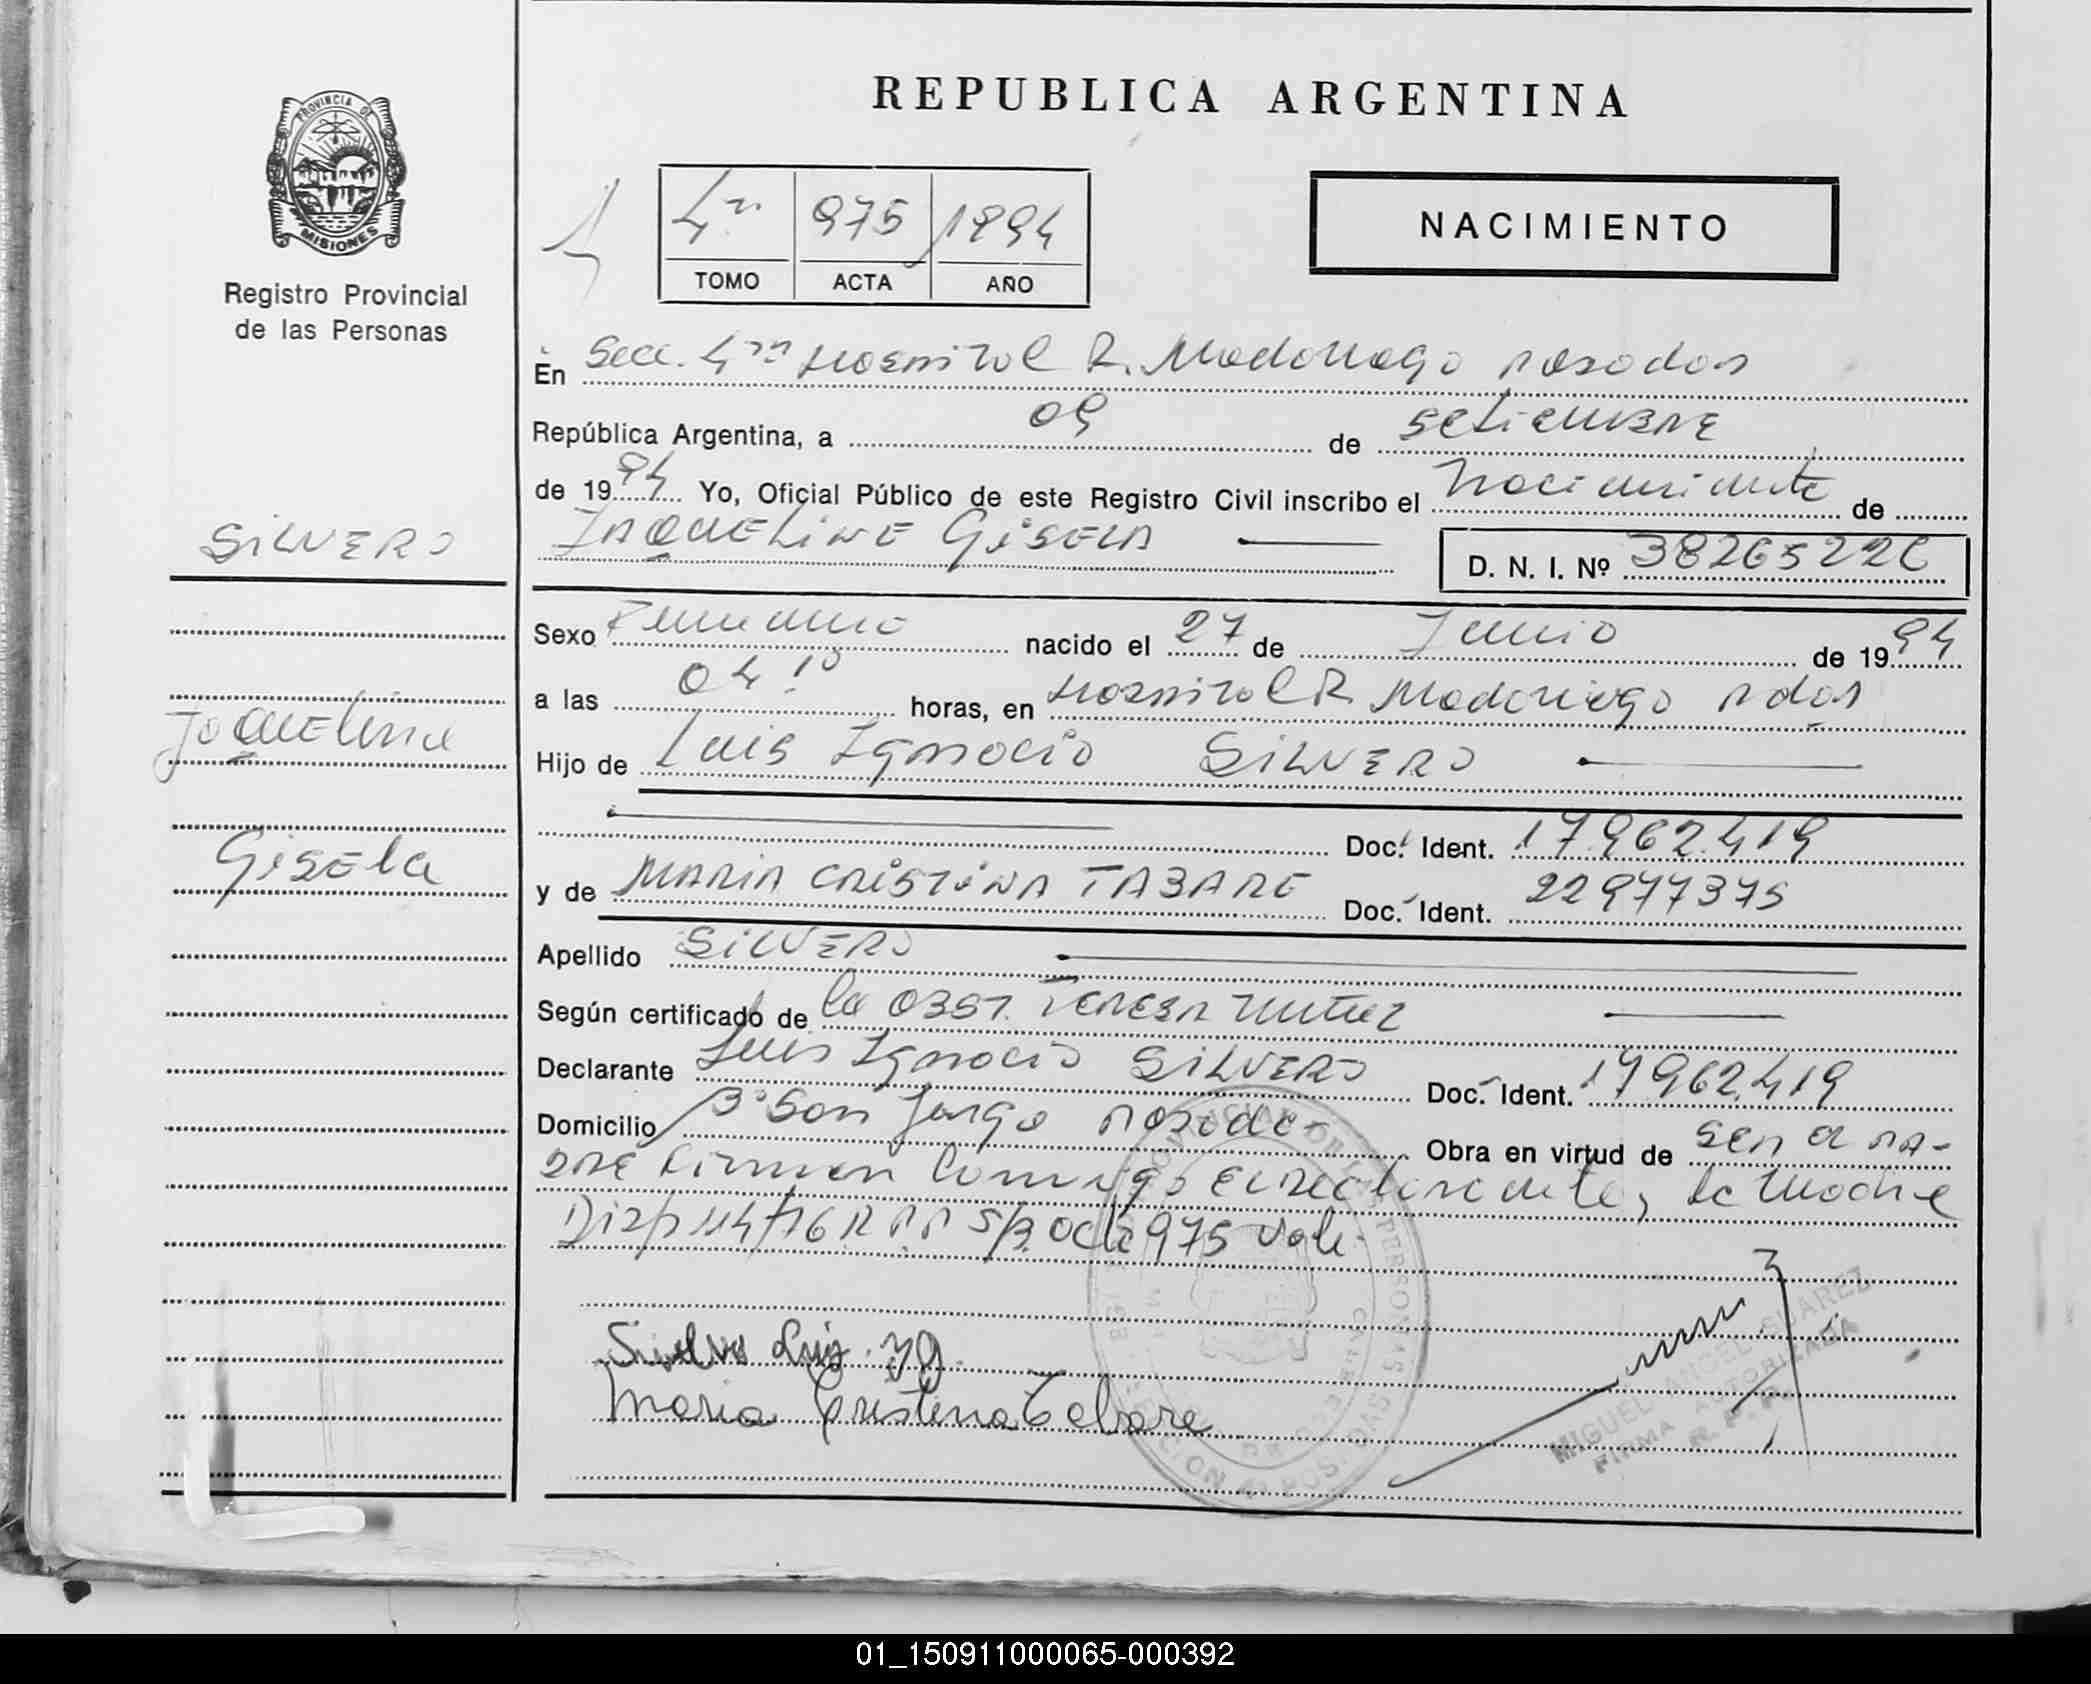 PROVINCIA DE
MISIONES
Registro Provincial
de las Personas
REPUBLICA ARGENTINA
NACIMIENTO
975 1994
TOMO ACTA AÑO
En Secc. Hospital R. Madariaga posadas
República Argentina, a 09 de setiembre
de 1994 Yo, Oficial Público de este Registro Civil inscribo el nacimiento de
JAQUELINE GISELA
D. N. I. Nº
SILVERO
Jaqueline
Gisela
Sexo Femenino nacido el 27 de Junio de 1994
a las 04.10 horas, en Hospital R. Madariaga pdas
Hijo de Luis Ignacio SILVERO
Doc. Ident. 17.962.419
y de MARIA CRISTINA TABARE Doc. Ident. 22977375
Apellido SILVERO
Según certificado de la OBST. TERESA
Declarante Luis Ignacio SILVERO Doc. Ident. 17962.419
Domicilio Bº San Jorge posadas Obra en virtud de ser el pa-
dre firman conmigo el declarante, la madre
975 vale.
Luis
Maria Cristina Tabare
MIGUEL ANGEL SUAREZ
FIRMA AUTORIZADA
R.P.P.
01_150911000065-000392